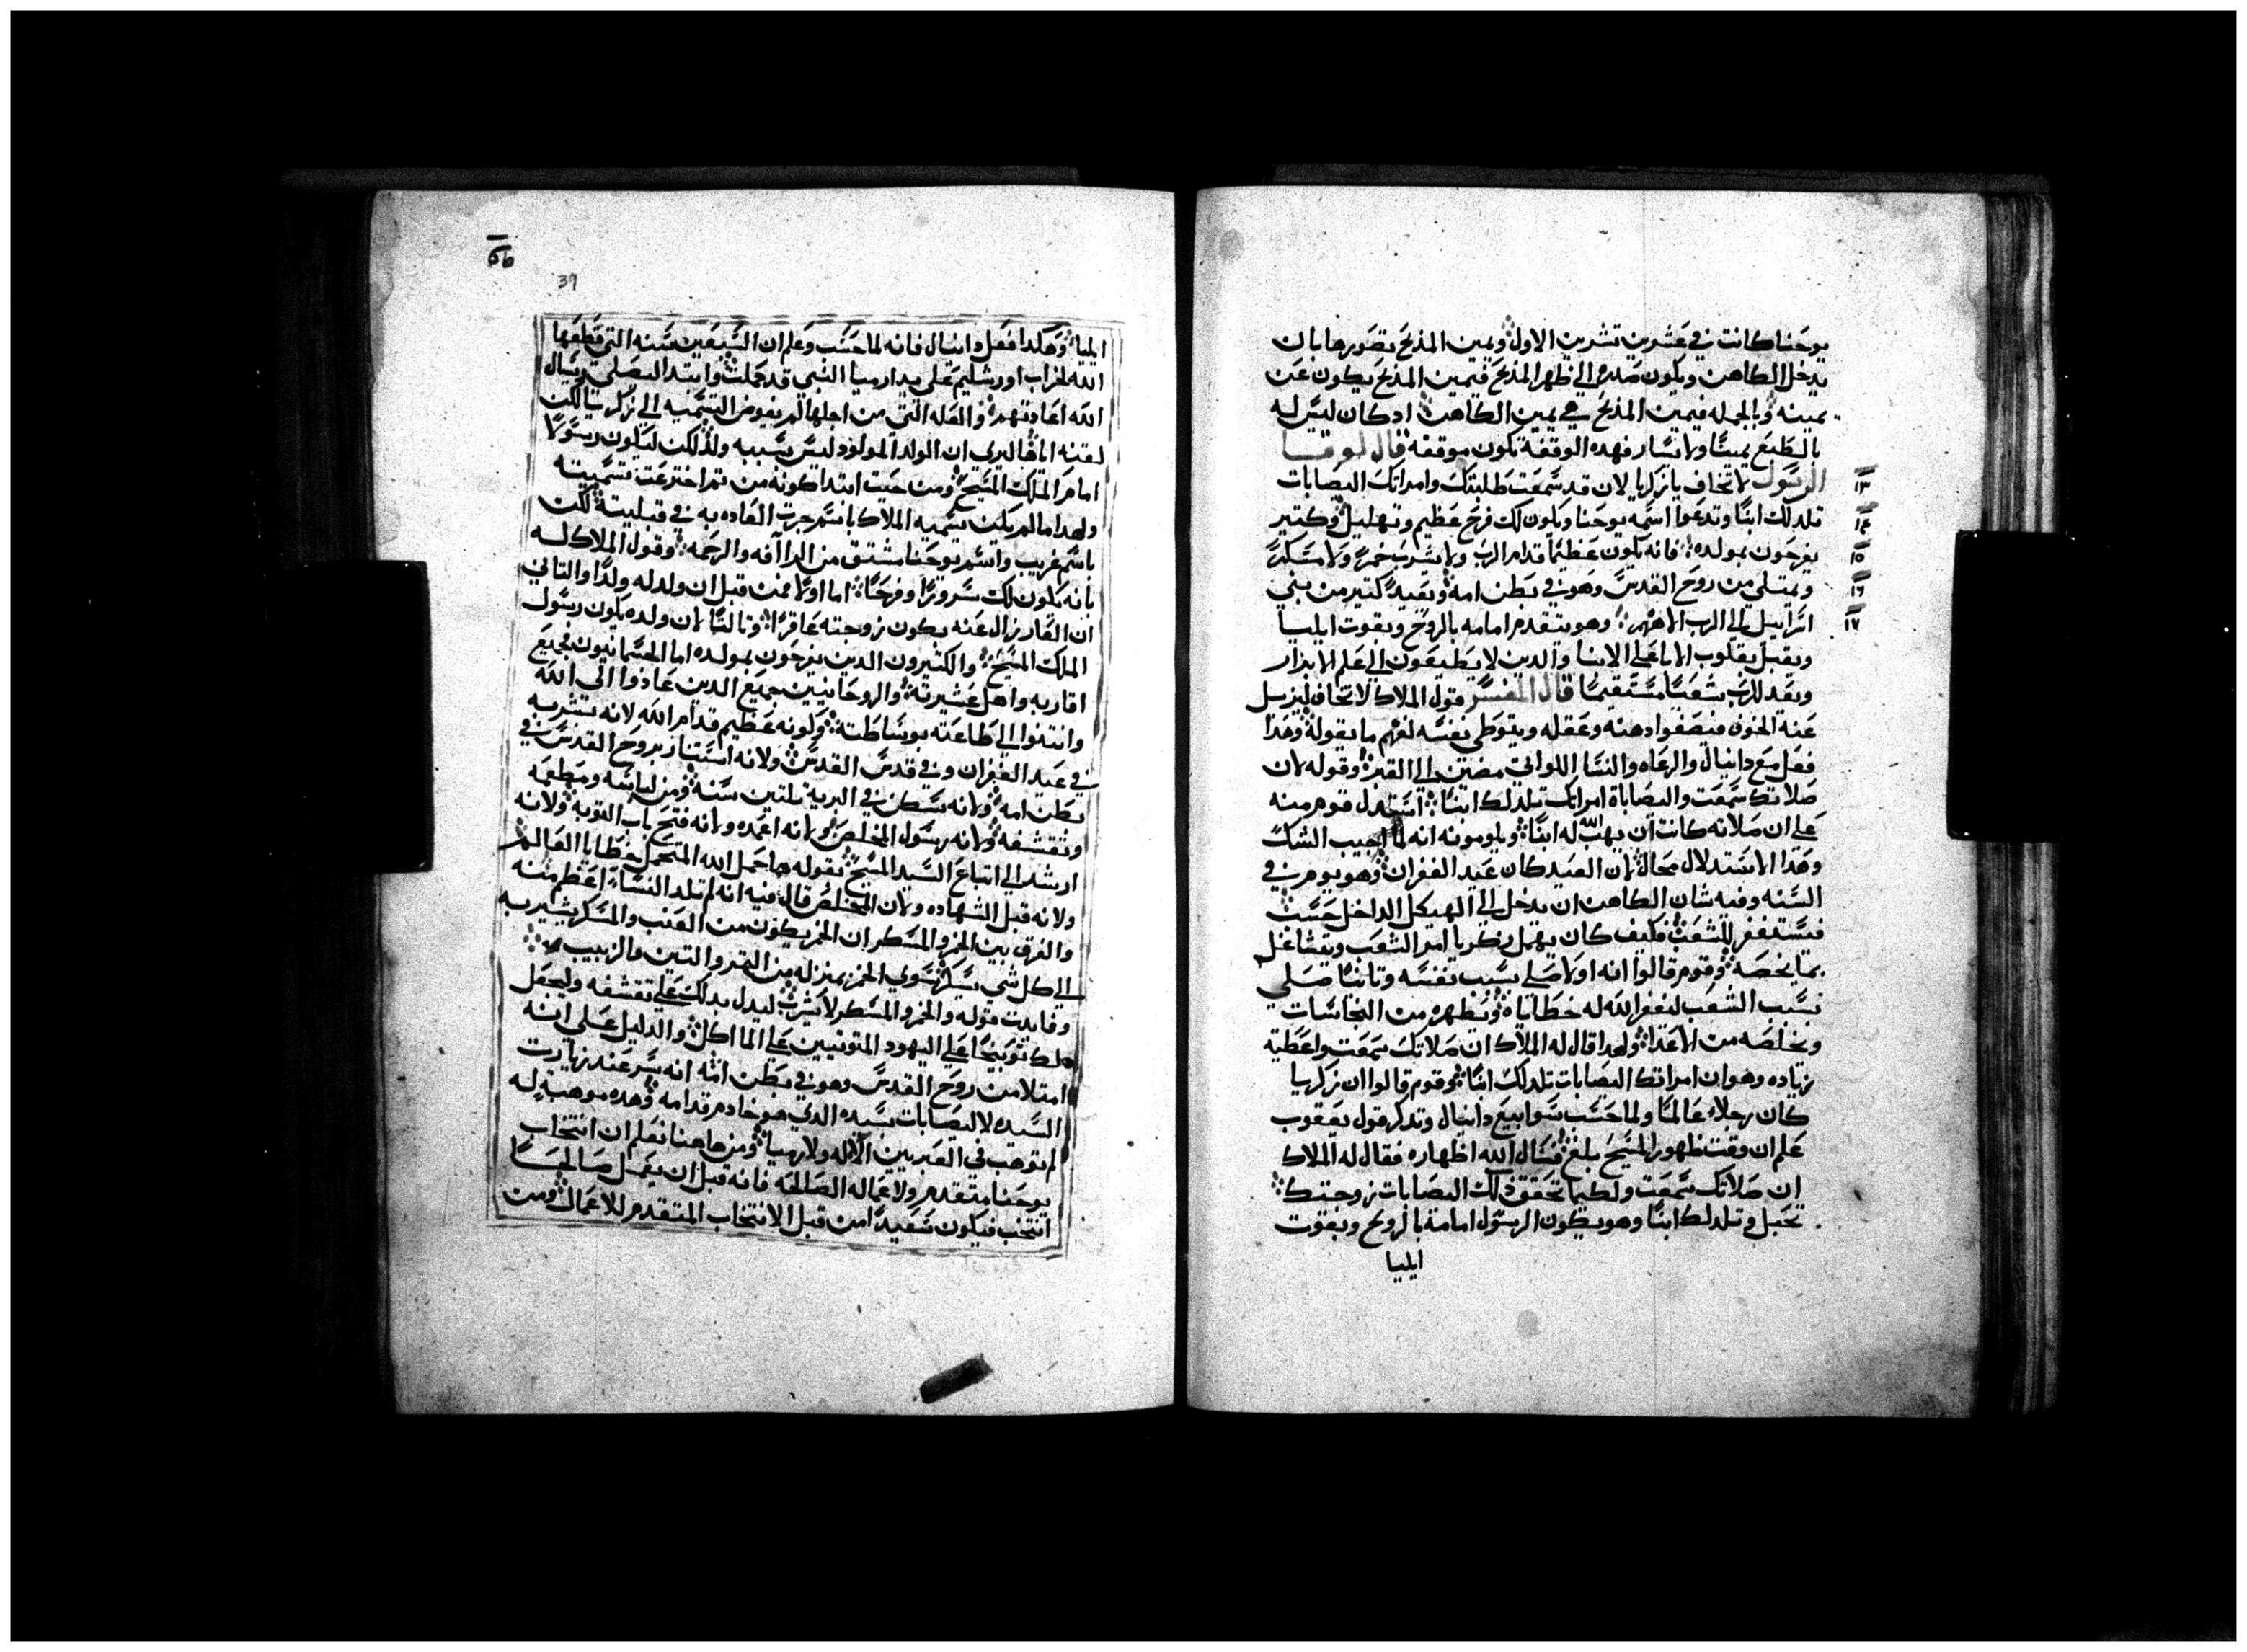 يوحنا كانت في عشرين تشرين الاول ويمين المذبح تصورها بان
يدخل الكاهن ويكون صدره الى ظهر المذبح فيمين المذبح يكون عن
يمينه وبالجمله فيمين المذبح هي يمين الكاهن ادكان ليس له
بالطبع يمينا ولا يسار فهده الوقفة تكون موقفه قال لوقا
١٣ الرسول لا تخاف يا زكريا لان قد سمعت طلبتك وامراتك اليصابات
١٤ تلد لك ابنا وتدعوا اسمه يوحنا ويكون لك فرح عظيم وتهليل وكتير
١٥ يفرحون بمولده فانه يكون عظيما قدام الرب ولا يشرب خمرا ولا مسكرا
١٦ ويمتلي من روح القدس وهو في بطن امه ويعيد كتير من بني
١٧ اسراييل الى الرب الاههم وهو يتقدم امامه بالروح وبقوت ايليا
ويقبل بقلوب الابا على الابنا والدين لا يطيعون الى علم الابرار
ويعد للرب شعبا مستقيما قال المفسر قول الملاك لا تخاف ليزيل
عنه الخوف فيصفوا دهنه وعقله ويتوطى نفسه لفهم ما يقوله وهدا
فعل مع دانيال والرعاه والنسا اللواتي مضين الى القبر وقوله لان
صلاتك سمعت واليصاباة امراتك تلد لك ابنا استدل قوم منه
على ان صلاته كانت ان يهب الله له ابنا ويلومونه انه لما اجيب الشك
وهدا الاستدلال محال لان العيد كان عيد الغفران وهو يوم في
السنه وفيه شان الكاهن ان يدخل الى الهيكل الداخل حسب
فيستغفر للشعب فكيف كان يهمل زكريا امر الشعب ويتشاغل
بما يخصه وقوم قالوا انه اولا صلى بسبب نفسه وتانيا صلى
بسبب الشعب ليغفر الله له خطاياه ويطهره من النجاسات
ويخلصه من الاعدا ولهدا قال له الملاك ان صلاتك سمعت واعطيه
زياده وهو ان امراتك اليصابات تلد لك ابنا وقوم قالوا ان زكريا
كان رجلا عالما ولما حسب سوابيع دانيال وتدكر قول يعقوب
علم ان وقت ظهور المسيح بلغ فسال الله اظهاره فقال له الملاك
ان صلاتك سمعت ولكيما تحقق دلك اليصابات زوجتك
تحبل وتلد لك ابنا وهو يكون الرسول امامه بالروح وبقوت
ايليا
39
ايليا وهكدا فعل دانيال فانه لما حسب وعلم ان السبعين سنه التي قطعها
الله لخراب اورشليم على يد ارميا النبي قد كملت وابتدا يصلي ويسال
الله اعادتهم والعله التي من اجلها لم يفوض التسميه الى زكريا لكن
لقنه اياها ليري ان الولد المولود ليس بسببه ولدلك لكن ليكون رسولا
امام الملك المسيح ومن حيث ابتدا كونه من تم اخترعت تسميته
ولهدا ما لم يكن يسميه الملاك باسم جرت العاده به في قبيلته لكن
باسم غريب واسم يوحنا مشتق من الرآفه والرحمه وقول الملاك له
بانه يكون لك سرورا وفرحا اما اولا فمن قبل ان ولد له ولدا والتاني
ان العار زال عنه بكون زوجته عاقرا وتالتا لان ولده يكون رسول
الملك المسيح والكتيرون الدين يفرحون بمولده اما الجسمانيون فجميع
اقاربه واهل عشيرته والروحانيين جميع الدين عادوا الى الله
وانتنوا الى طاعته بوساطته وكونه عظيم قدام الله لانه بشر به
في عيد الغفران وفي قدس القدس ولانه استنار بروح القدس في
بطن امه ولانه سكن في البرية تلتين سنه ومن لباسه ومطعمه
وتقشفه ولانه رسول المخلص ولانه اعمده ولانه فتح باب التوبه ولانه
ارشد الى اتباع السيد المسيح بقوله ها حمل الله المتحمل خطايا العالم
ولانه قبل الشهاده ولان المخلص قال فيه انه لم تلد النسا اعظم منه
والفرق بين الخمر والمسكر ان الخمر يكون من العنب والمسكر يشير به
الى كل شي يسكر سوى الخمر بمنزله من التمر والتين والزبيب
وفايدت قوله والخمر والمسكر لا يشرب ليدل بدلك على تقشفه وليجعل
دلك توبيخا على اليهود المتونيين على الماكل والدليل على انه
امتلا من روح القدس وهو في بطن امه انه بشر عند زيارت
السيده لاليصابات بسيده الدي هو خادم قدامه وهده موهبه له
لم توهب في العبريين الا له ولارميا ومن هاهنا نعلم ان انتخاب
يوحنا متقدم ولاعماله الصالحه فانه قبل ان يعمل صالحا
انتخب فيكون سعيدا من قبل الانتخاب المتقدم للاعمال ومن